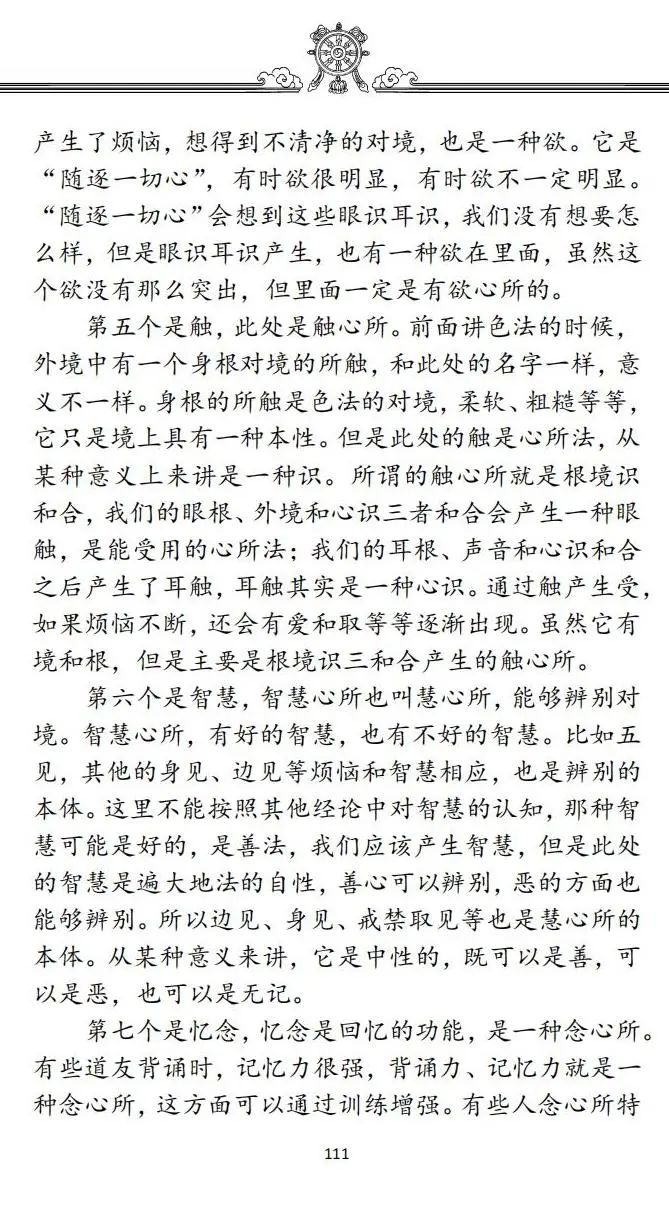 产生了烦恼，想得到不清净的对境，也是一种欲。它是
“随逐一切心”，有时欲很明显，有时欲不一定明显。
“随逐一切心”会想到这些眼识耳识，我们没有想要怎
么样，但是眼识耳识产生，也有一种欲在里面，虽然这
个欲没有那么突出，但里面一定是有欲心所的。
第五个是触，此处是触心所。前面讲色法的时候，
外境中有一个身根对境的所触，和此处的名字一样，意
义不一样。身根的所触是色法的对境，柔软、粗糙等等，
它只是境上具有一种本性。但是此处的触是心所法，从
某种意义上来讲是一种识。所谓的触心所就是根境识
和合，我们的眼根、外境和心识三者和合会产生一种眼
触，是能受用的心所法；我们的耳根、声音和心识和合
之后产生了耳触，耳触其实是一种心识。通过触产生受，
如果烦恼不断，还会有爱和取等等逐渐出现。虽然它有
境和根，但是主要是根境识三和合产生的触心所。
第六个是智慧，智慧心所也叫慧心所，能够辨别对
境。智慧心所，有好的智慧，也有不好的智慧。比如五
见，其他的身见、边见等烦恼和智慧相应，也是辨别的
本体。这里不能按照其他经论中对智慧的认知，那种智
慧可能是好的，是善法，我们应该产生智慧，但是此处
的智慧是遍大地法的自性，善心可以辨别，恶的方面也
能够辨别。所以边见、身见、戒禁取见等也是慧心所的
本体。从某种意义来讲，它是中性的，既可以是善，可
以是恶，也可以是无记。
第七个是忆念，忆念是回忆的功能，是一种念心所。
有些道友背诵时，记忆力很强，背诵力、记忆力就是一
种念心所，这方面可以通过训练增强。有些人念心所特
111